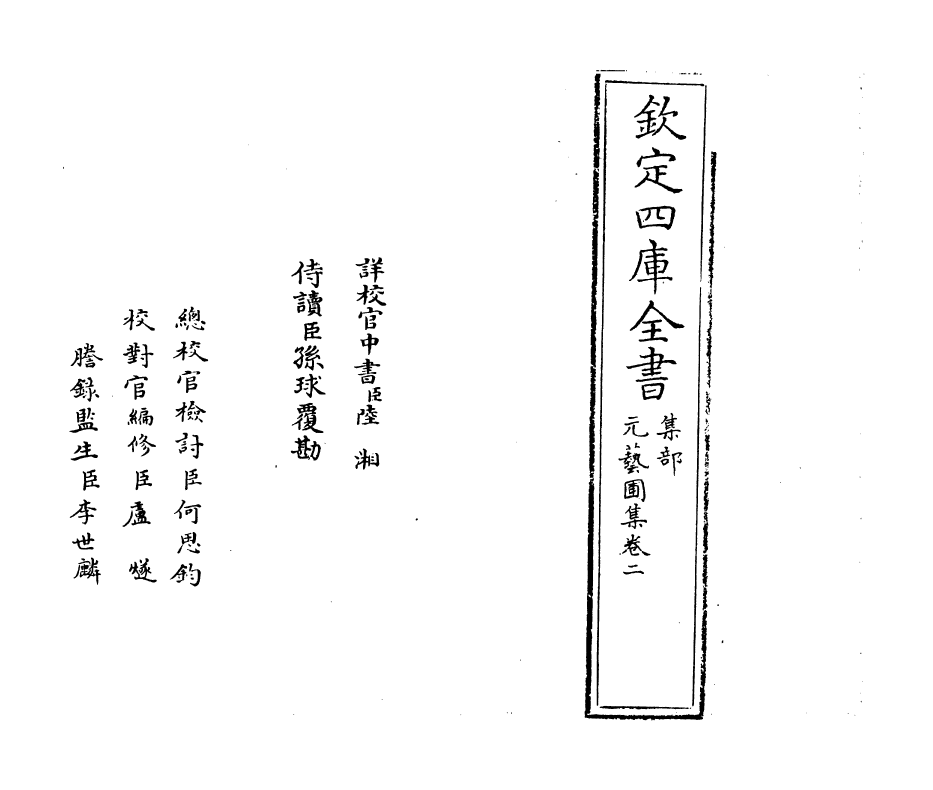 欽定四庫全書
集部
元藝圃集卷二
詳校官中書臣陸湘
侍讀臣孫球覆勘
總校官檢討臣何思鈞
校對官編修臣盧燧
謄錄監生臣李世麟